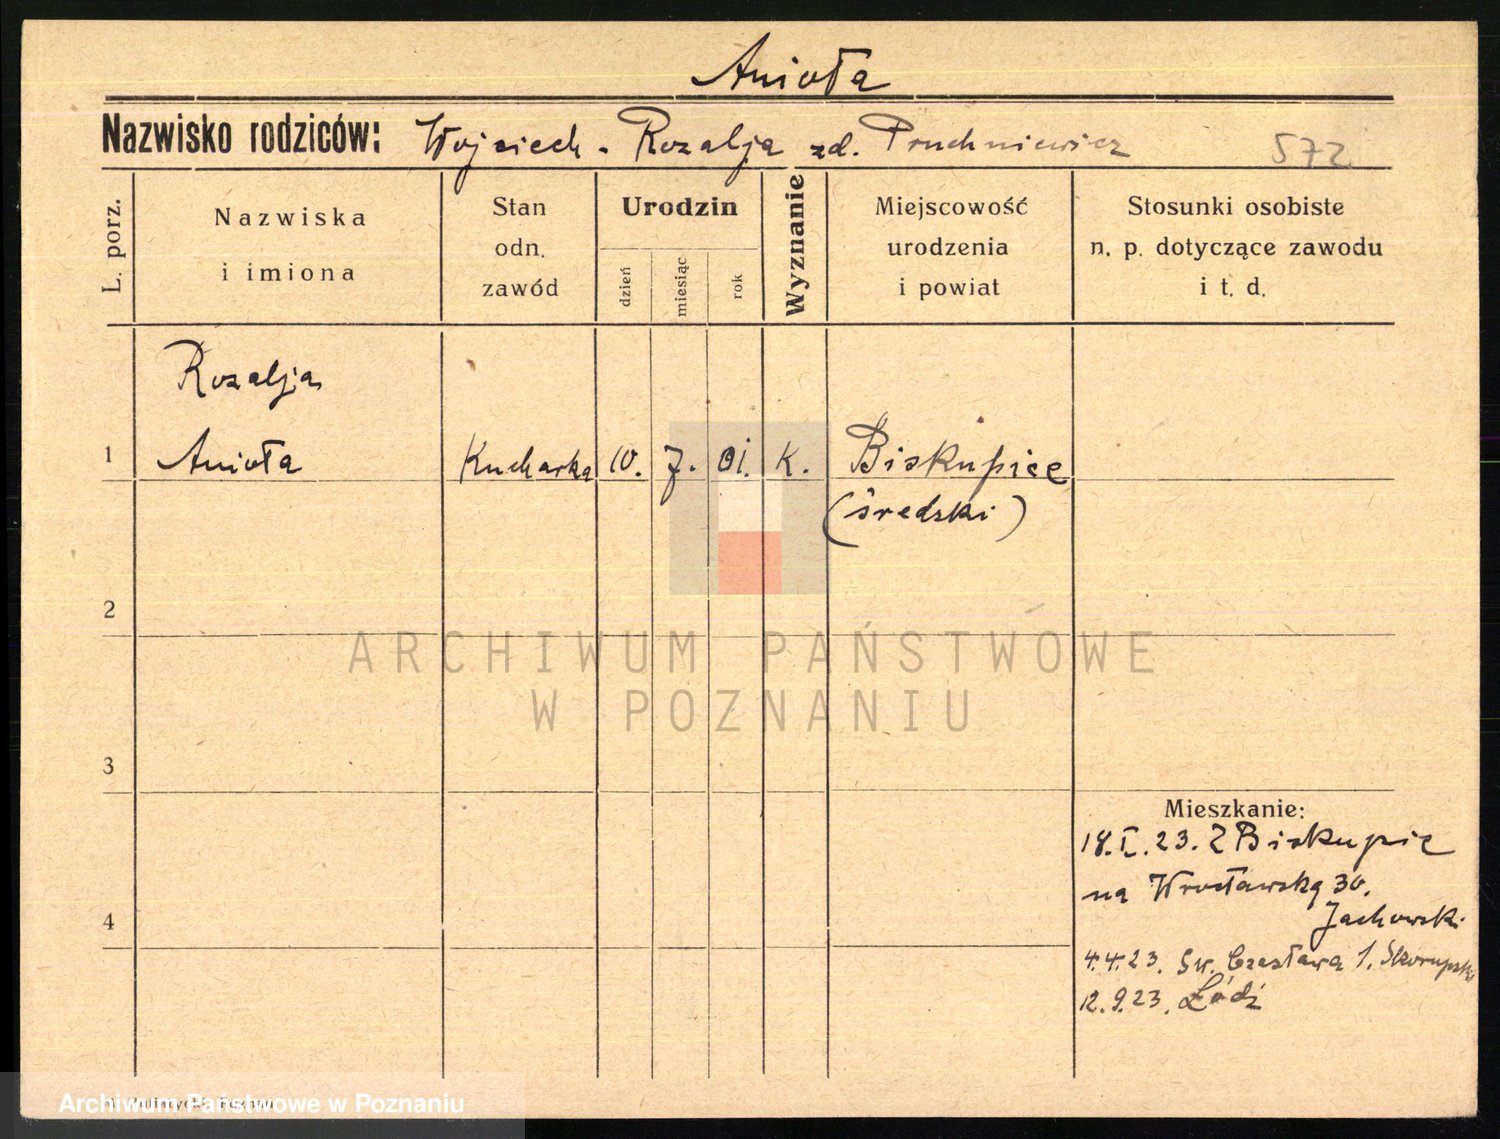 Anioła
Nazwisko rodziców: Wojciech - Rozalja zd. Pruchniewicz 572
L. porz.
Nazwiska
i imiona
Stan
odn.
zawód
Urodzin
dzień
miesiąc
rok
Wyznanie
Miejscowość
urodzenia
i powiat
Stosunki osobiste
n. p. dotyczące zawodu
i t. d.
Rozalja
1 Anioła Kucharka 10. 7. 01. K. Biskupice
(średzki)
2
ARCHIWUM PAŃSTWOWE
W POZNANIU
3
Mieszkanie:
18.I.23. Z Biskupic
na Wrocławską 30.
Jachowski
4
4.4.23. Św. Czesława 1. Skorupski
12.9.23. Łódź
Archiwum Państwowe w Poznaniu